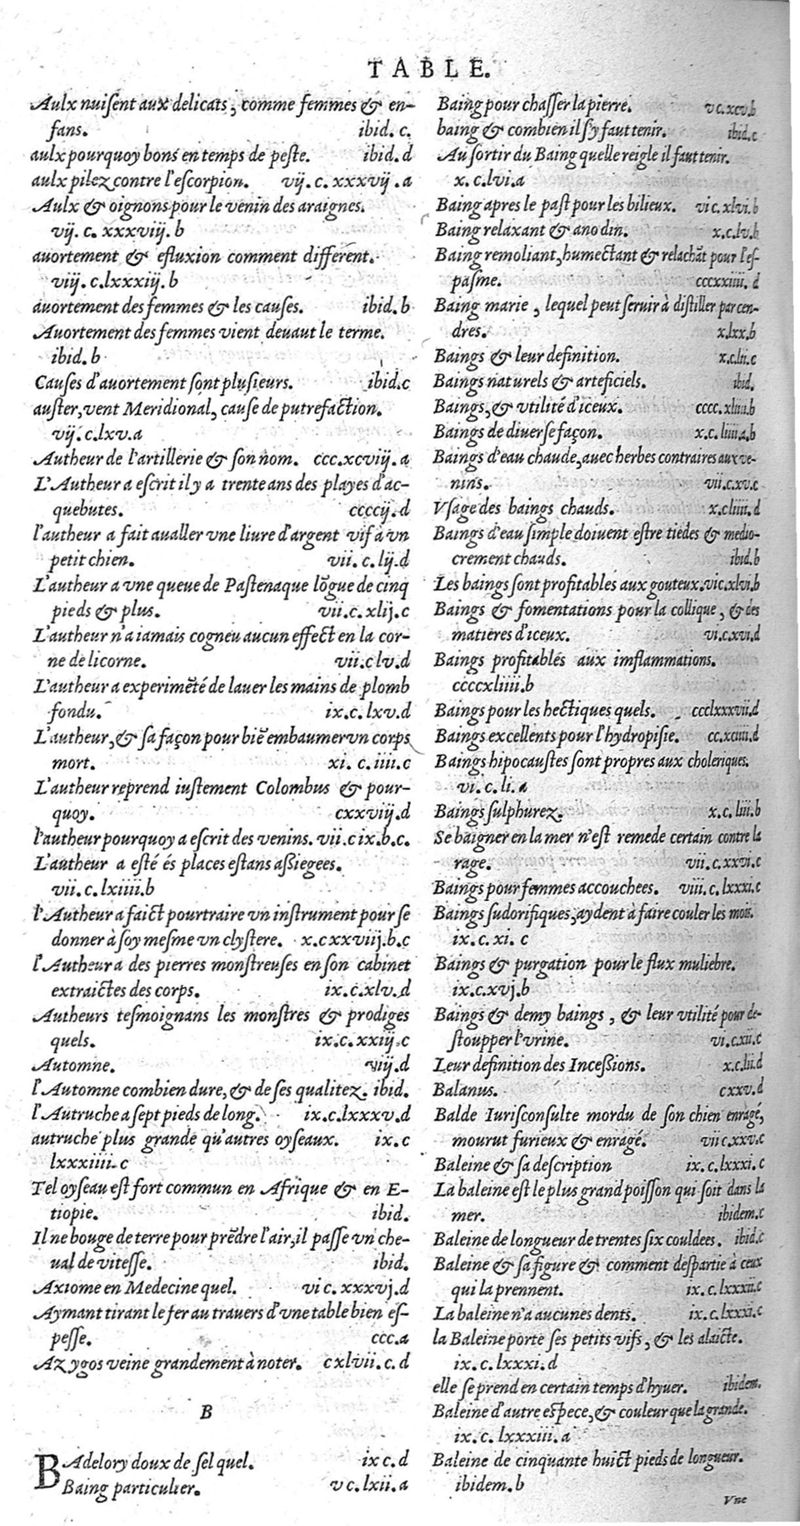 TABLE.
Aulx nuiſent aux delicats, comme femmes & en-
fans. ibid. c.
aulx pourquoy bons en temps de peſte. ibid. d
aulx pilez contre l'eſcorpion. vij. c. xxxvij. a
Aulx & oignons pour le venin des araignes.
vij. c. xxxviij. b
auortement & efluxion comment different.
viij. c. lxxxiij. b
auortement des femmes & les cauſes. ibid. b
Auortement des femmes vient deuaut le terme.
ibid. b
Cauſes d'auortement ſont pluſieurs. ibid. c
auſter, vent Meridional, cauſe de putrefaction.
vij. c. lxv. a
Autheur de l'artillerie & ſon nom. ccc. xcviij. a
L'Autheur a eſcrit il y a trente ans des playes d'ac-
quebutes. ccccij. d
l'autheur a fait aualler vne liure d'argent vif à vn
petit chien. vii. c. lij. d
L'autheur a vne queue de Paſtenaque lõgue de cinq
pieds & plus. vii. c. xlij. c
L'autheur n'a iamais cogneu aucun effect en la cor-
ne de licorne. vii. c lv. d
L'autheur a experimẽté de lauer les mains de plomb
fondu. ix. c. lxv. d
L'autheur, & ſa façon pour biẽ embaumer vn corps
mort. xi. c. iiii. c
L'autheur reprend iuſtement Colombus & pour-
quoy. cxxviij. d
l'autheur pourquoy a eſcrit des venins. vii. c ix. b. c.
L'autheur a eſté és places eſtans aſsiegees.
vii. c. lxiiii. b
l'Autheur a faict pourtraire vn inſtrument pour ſe
donner à ſoy meſme vn clyſtere. x. c xxviij. b. c
l'Autheur a des pierres monſtreuſes en ſon cabinet
extraictes des corps. ix. c. xlv. d
Autheurs teſmoignans les monſtres & prodiges
quels. ix. c. xxij. c
Automne. viij. d
l'Automne combien dure, & de ſes qualitez. ibid.
l'Autruche a ſept pieds de long. ix. c. lxxxv. d
autruche plus grande qu'autres oyſeaux. ix. c
lxxxiiii. c
Tel oyſeau eſt fort commun en Afrique & en E-
tiopie. ibid.
Il ne bouge de terre pour prẽdre l'air, il paſſe vn che-
ual de viteſſe. ibid.
Axiome en Medecine quel. vi c. xxxvj. d
Aymant tirant le fer au trauers d'vne table bien eſ-
peſſe. ccc. a
Azygos veine grandement à noter. cxlvii. c. d
B
BAdelory doux de ſel quel. ix c. d
Baing particulier. v c. lxii. a
Baing pour chaſſer la pierre. v c. xcv. b
baing & combien il ſ'y faut tenir. ibid. c
Au ſortir du Baing quelle reigle il faut tenir.
x. c. lvi. a
Baing apres le paſt pour les bilieux. vi c. xlvi. b
Baing relaxant & anodin. x. c. lv. b
Baing remoliant, humectant & relachãt pour l'eſ-
paſme. cccxxiiii. d
Baing marie, lequel peut ſeruir à diſtiller par cen-
dres. x. lxx. b
Baings & leur definition. x. c. lii. c
Baings naturels & arteficiels. ibid.
Baings, & vtilité d'iceux. cccc. xliiii. b
Baings de diuerſe façon. x. c. liiii. a, b
Baings d'eau chaude, auec herbes contraires aux ve-
nins. vii. c. xv. c
Vſage des baings chauds. x. c liiii. d
Baings d'eau ſimple doiuent eſtre tiedes & medio-
crement chauds. ibid. b
Les baings ſont profitables aux gouteux. vi c. xlvi. b
Baings & fomentations pour la collique, & des
matieres d'iceux. vi. c. xvi. d
Baings profitables aux imflammations.
ccccxliiii. b
Baings pour les hectiques quels. ccclxxxvii. d
Baings excellents pour l'hydropiſie. cc. xciiii. d
Baings hipocauſtes ſont propres aux choleriques.
vi. c. li. a
Baings ſulphurez. x. c. liii. b
Se baigner en la mer n'eſt remede certain contre la
rage. vii. c. xxvi. c
Baings pour femmes accouchees. viii. c. lxxxi. c
Baings ſudorifiques, aydent à faire couler les mois.
ix. c. xi. c
Baings & purgation pour le flux muliebre.
ix. c. xvj. b
Baings & demy baings, & leur vtilité pour de-
ſtoupper l'vrine. vi. c. xii. c
Leur definition des Inceſsions. x. c. lii. d
Balanus. cxxv. d
Balde Iuriſconſulte mordu de ſon chien enragé,
mourut furieux & enragé. vii c. xxv. c
Baleine & ſa deſcription ix. c. lxxxi. c
La baleine eſt le plus grand poiſſon qui ſoit dans la
mer. ibidem. c
Baleine de longueur de trentes ſix couldees. ibid. c
Baleine & ſa figure & comment deſpartie à ceux
qui la prennent. ix. c. lxxxii. c
La baleine n'a aucunes dents. ix. c. lxxxi. c
la Baleine porte ſes petits vifs, & les alaicte.
ix. c. lxxxi. d
elle ſe prend en certain temps d'hyuer. ibidem.
Baleine d'autre eſpece, & couleur que la grande.
ix. c. lxxxiii. a
Baleine de cinquante huict pieds de longueur.
ibidem. b
Vne